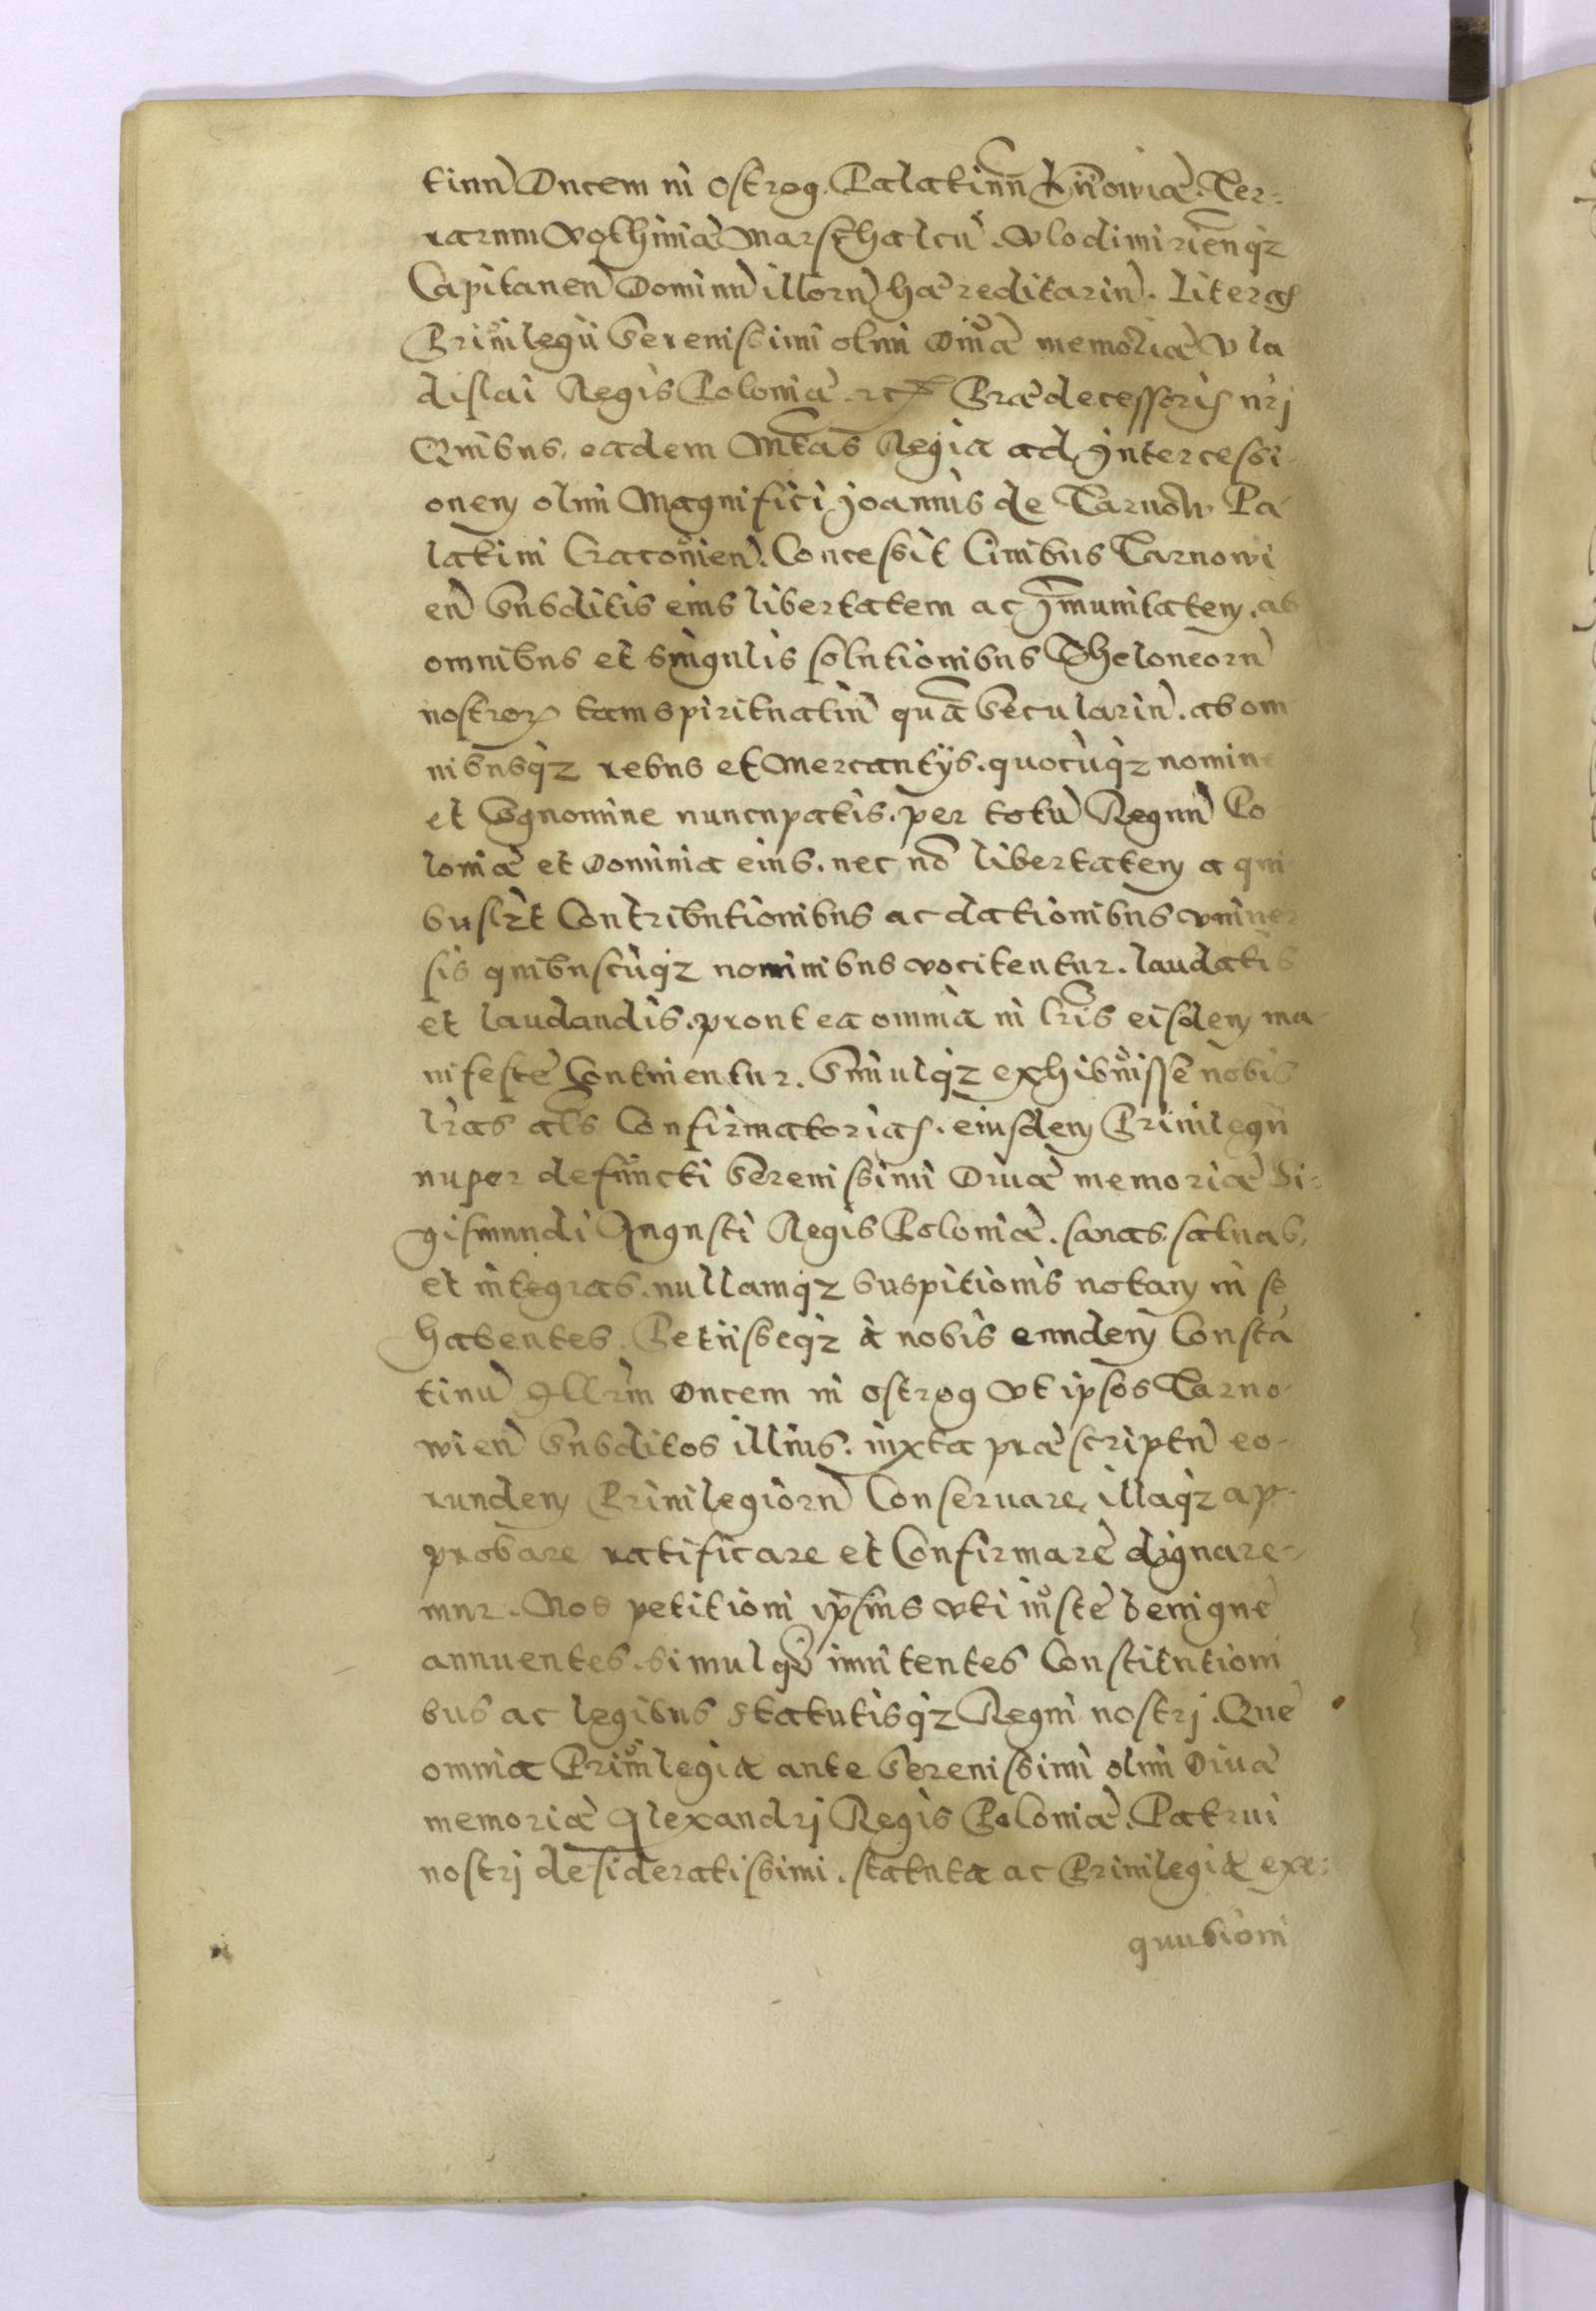 tinũ Ducem in Ostrog. Palatinũ Kijowiæ. Ter-
rarum Volhiniæ Marschalcũ. Vlodimirieñ q3
Capitaneũ Dominũ illorũ hæreditariũ. Literas
Priuilegii Serenissimi olim Diuæ memoriæ Vla
dislai Regis Poloniæ. etc. Prædecessoris nrj
Quibus, eadem Mtas Regia ad Intercessi
onem olim Magnifici Joannis de Tarnow Pa-
latini Cracouień. Concessit Ciuibus Tarnowi
eñ Subditis eius libertatem ac Im̃unitatem. ab
omnibus et singulis solutionibus Theloneorũ
nostrorum tam spiritualiũ quã Seculariũ. ab om
nibusq3 rebus et Mercantijs. quocũq3 nomine
et Cognomine nuncupatis. per totũ Regnũ Po
loniæ et Dominia eius. nec nõ libertatem a qui
buslzt Contributionibus ac dationibus vniuer
sis quibuscũq3 nominibus vocitentur. laudatis
et laudandis. prout ea omnia in lris eisdem ma-
nifestè Continentur. Simulq3 exhibuisse nobis
lras als Confirmatorias. eiusdem Priuilegii
nuper defuncti Serenissimi Diuæ memoriæ Si-
gismundi Augusti Regis Poloniæ. sanas, saluas,
et integras. nullamq3 suspitionis notam in se
habentes. Petiisseq3 à nobis eundem Constã
tinũ Illrm̃ Ducem in Ostrog vt ipsos Tarno-
wieñ Subditos illius. iuxta præscriptũ eo-
rundem Priuilegiorũ Conseruare, illaq3 ap-
probare ratificare et Confirmarè dignare-
mur. Nos petitioni ipsius vti iustè benignè
annuentes. simulq3 innitentes Constitutioni
bus ac legibus statutisq3 Regni nostrj. Quæ
omnia Priuilegia ante Serenissimi olim Diuæ
memoriæ Alexandrj Regis Poloniæ. Patrui
nostrj desideratissimi. statuta ac Priuilegia exe-
quutioni